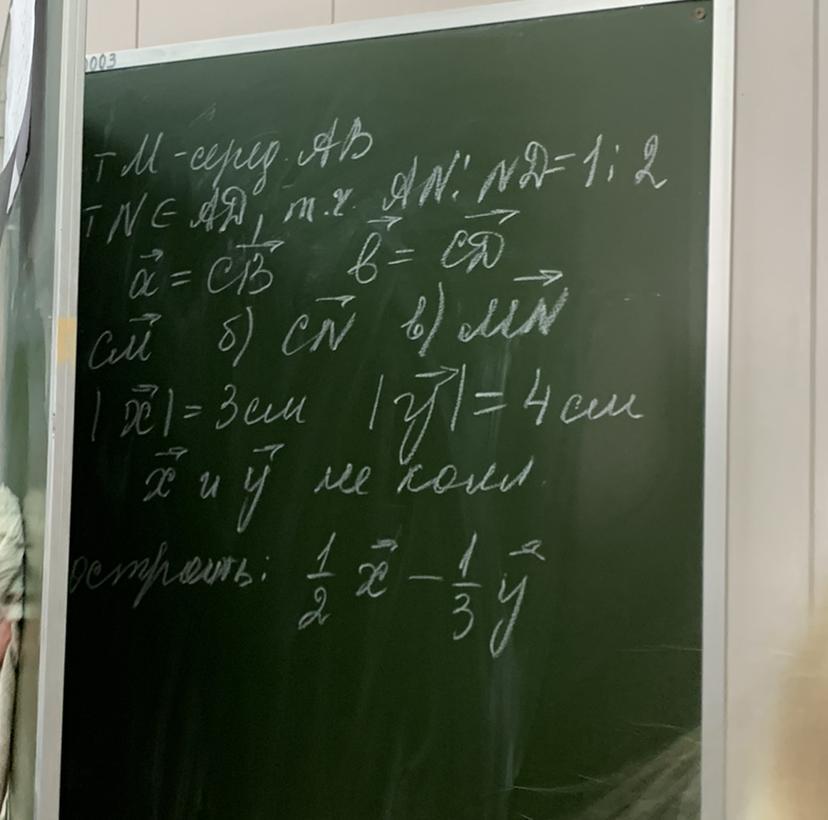 0003
т М - серед. AB
т N ∈ AD, т.ч. AN : ND = 1 : 2
a⃗ = CB⃗ b⃗ = CD⃗
CM⃗ б) CN⃗ в) MN⃗
|x⃗| = 3 см |y⃗| = 4 см
x⃗ и y⃗ не колл.
остроить: 1/2 x⃗ - 1/3 y⃗